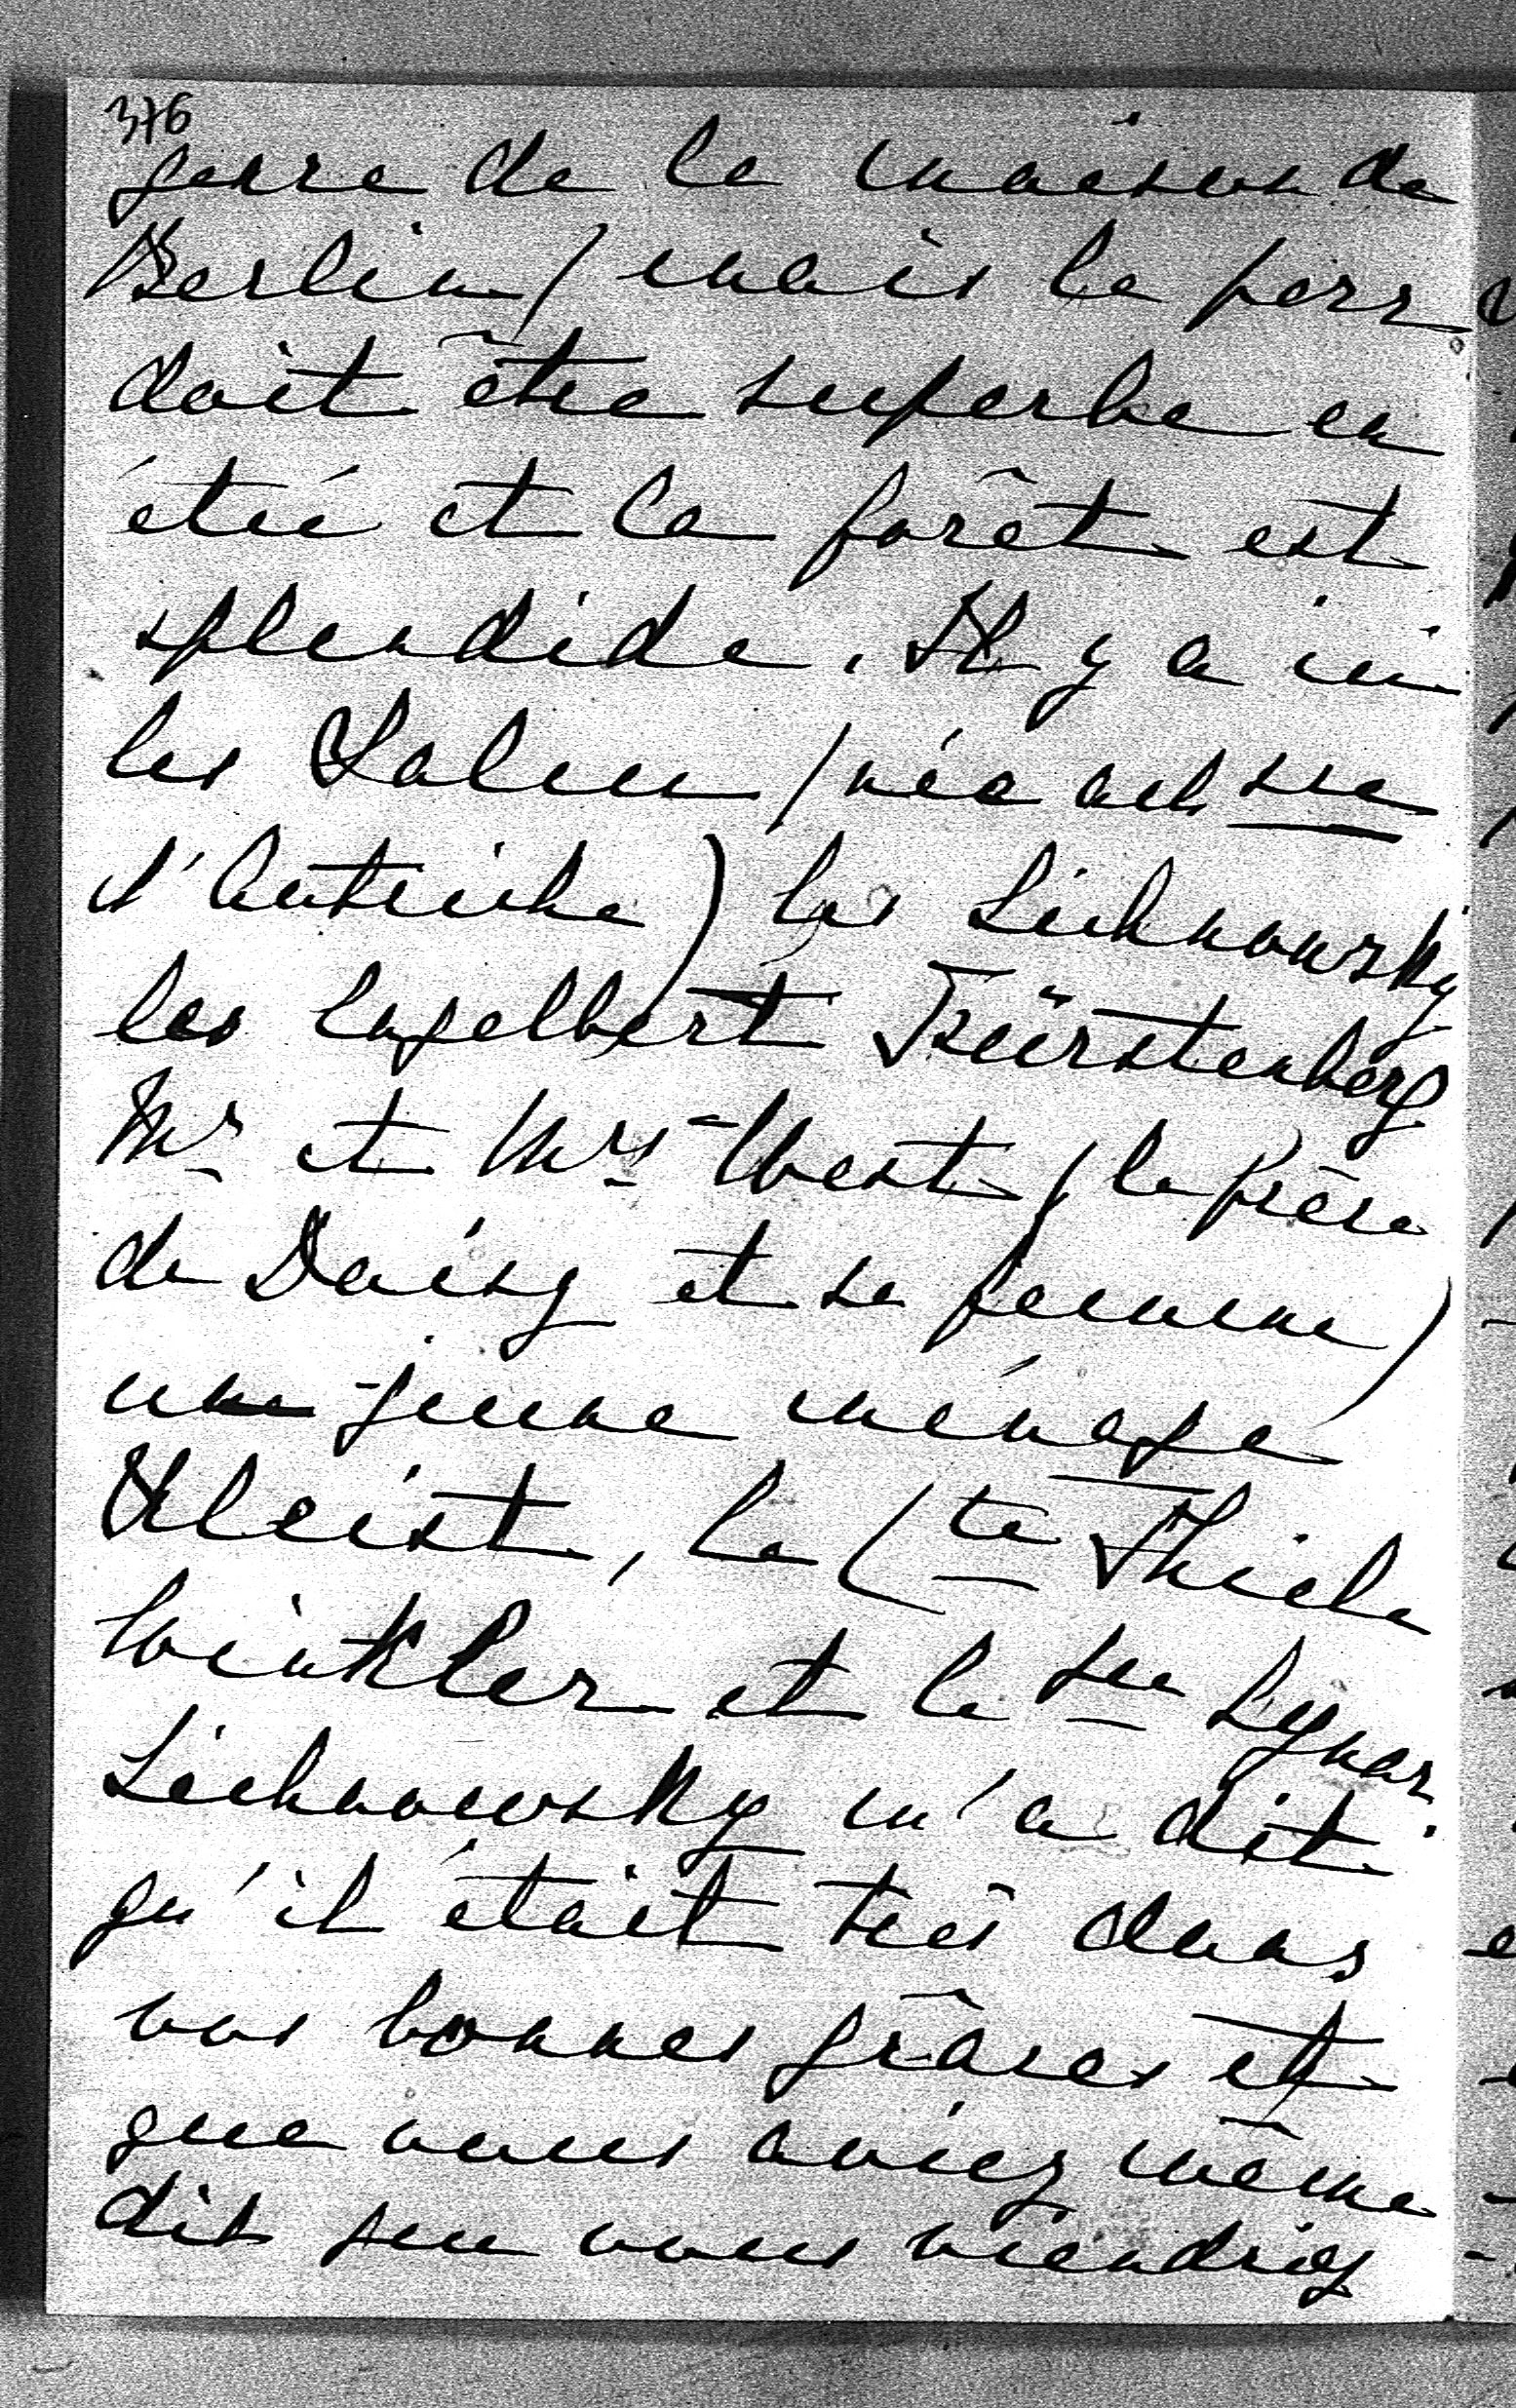 376
genre de la maison de
Berlin / mais le parc
doit être superbe en
été et la forêt est
splendide. Il y a ici
les Salm / née arch sse
d'Autriche) les Lichnowsky
les Engelbert Fürstenberg
Mr et Mrs West / le frère
de Daisy et sa femme)
un jeune ménage
Kleist, la Cte Thiele
Winkler et la sse Lynar.
Lichnowsky m'a dit
qu'il était très dans
vos bonnes grâces et
que vous aviez même
dit que vous viendriez